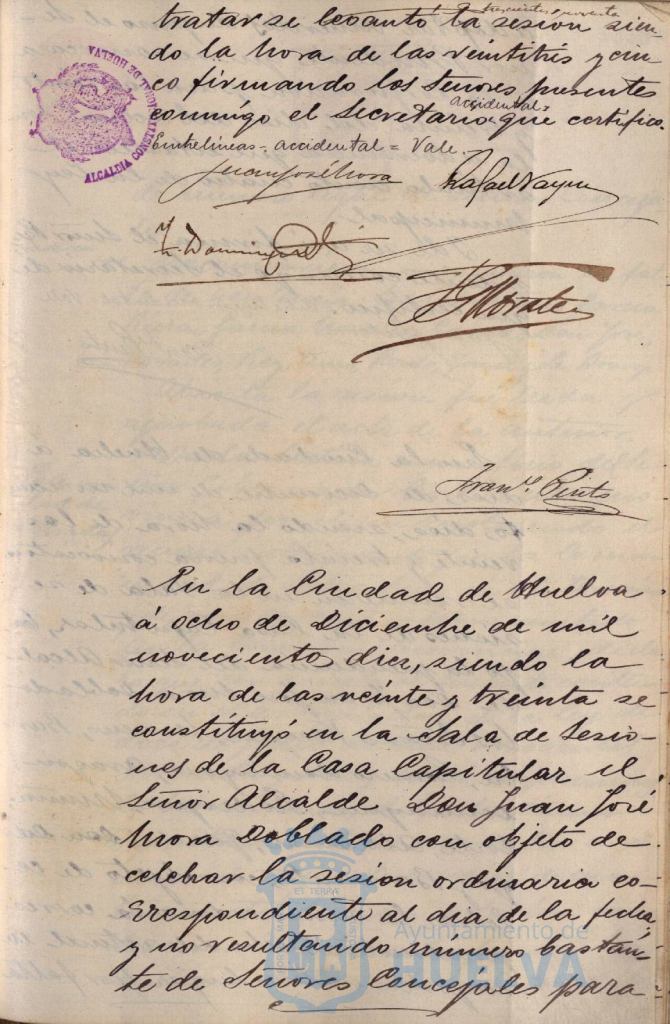 tratar se levantó la sesión sien-
do la hora de las veintitrés y cin-
co firmando los Señores presentes
accidental=
conmigo el Secretario que certifico.
Entrelineas=accidental=Vale.
ALCALDIA CONSTITUCIONAL DE HUELVA
Juan José Mora
Rafael
Morales
Fran.º Pinto
En la Ciudad de Huelva
á ocho de Diciembre de mil
novecientos diez, siendo la
hora de las veinte y treinta se
constituyó en la Sala de Sesio-
nes de la Casa Capitular el
Señor Alcalde Don Juan José
Mora Doblado con objeto de
celebrar la sesion ordinaria co-
rrespondiente al dia de la fecha,
y no resultando número bastan-
te de Señores Concejales para
Ayuntamiento de
HUELVA